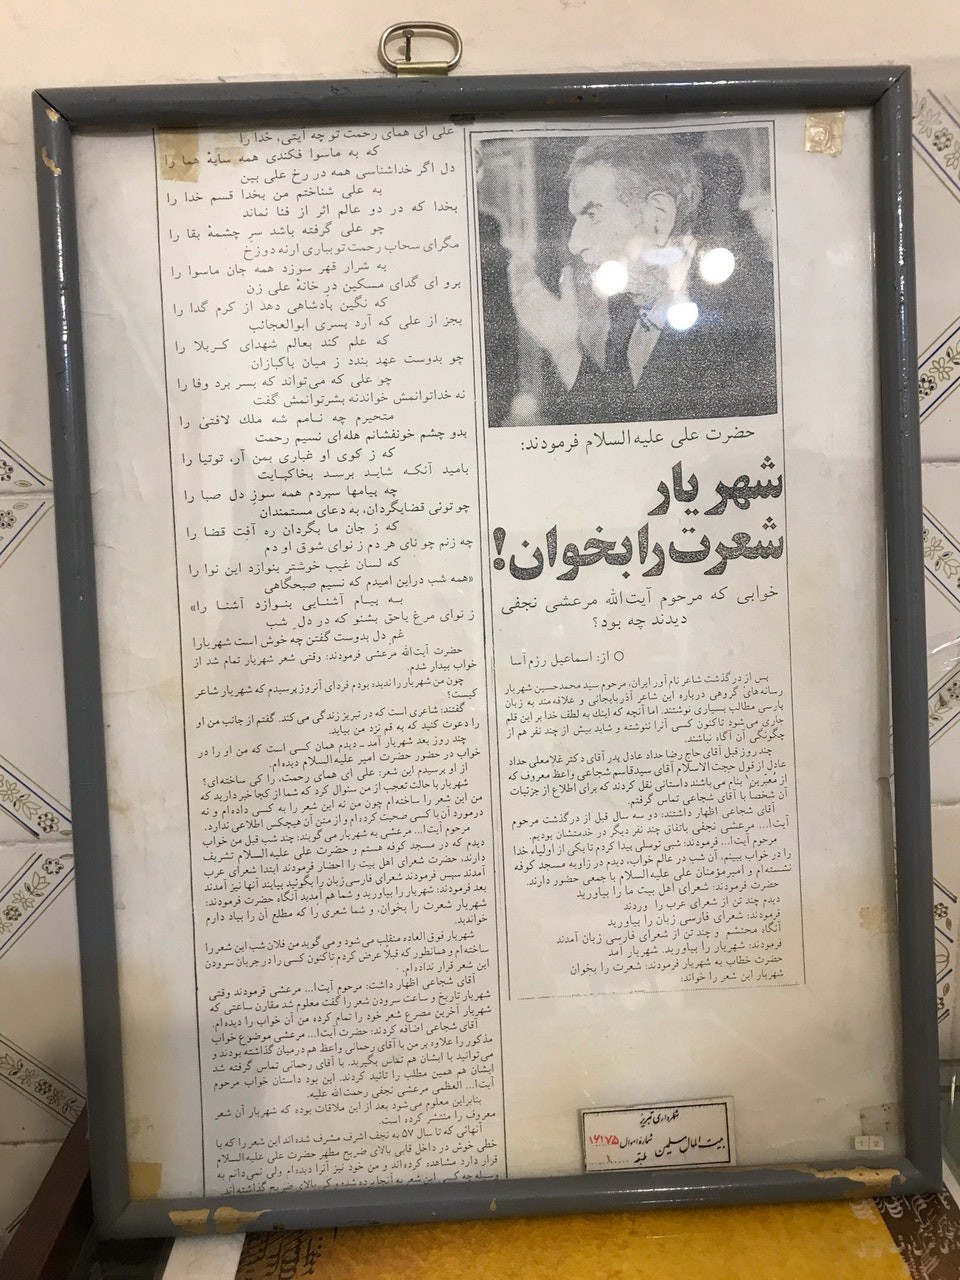 حضرت علی علیه السلام فرمودند:
شهریار
شعرت را بخوان!
خوابی که مرحوم آیت‌الله مرعشی نجفی
دیدند چه بود؟
○ از: اسماعیل رزم آسا
پس از درگذشت شاعر نام آور ایران، مرحوم سید محمدحسین شهریار
رسانه‌های گروهی درباره این شاعر آذربایجانی و علاقه‌مند به زبان
پارسی مطالب بسیاری نوشتند. اما آنچه که اینك به لطف خدا بر این قلم
جاری می‌شود تاکنون کسی آنرا ننوشته و شاید بیش از چند نفر هم از
چگونگی آن آگاه نباشند.
چند روز قبل آقای حاج رضا حداد عادل پدر آقای دکتر غلامعلی حداد
عادل از قول حجت الاسلام آقای سیدقاسم شجاعی واعظ معروف که
از معبرین بنام می‌باشند داستانی نقل کردند که برای اطلاع از جزئیات
آن شخصاً با آقای شجاعی تماس گرفتم.
آقای شجاعی اظهار داشتند: دو سه سال قبل از درگذشت مرحوم
آیت‌ا... مرعشی نجفی باتفاق چند نفر دیگر در خدمتشان بودیم.
مرحوم آیت‌ا... فرمودند: شبی توسلی پیدا کردم تا یکی از اولیاء خدا
را در خواب ببینم، آن شب در عالم خواب، دیدم در زاویه مسجد کوفه
نشسته‌ام و امیرمؤمنان علی علیه‌السلام با جمعی حضور دارند.
حضرت فرمودند: شعرای اهل بیت ما را بیاورید
دیدم چند تن از شعرای عرب را آوردند
فرمودند: شعرای فارسی زبان را بیاورید
آنگاه محتشم و چند تن از شعرای فارسی زبان آمدند
فرمودند: شهریار را بیاورید. شهریار آمد
حضرت خطاب به شهریار فرمودند: شعرت را بخوان
شهریار این شعر را خواند:
علی ای همای رحمت تو چه آیتی، خدا را
که به ماسوا فکندی همه سایهٔ هما را
دل اگر خداشناسی همه در رخ علی بین
به علی شناختم من بخدا قسم خدا را
بخدا که در دو عالم اثر از فنا نماند
چو علی گرفته باشد سرِ چشمهٔ بقا را
مگر ای سحاب رحمت تو بباری ارنه دوزخ
به شرار قهر سوزد همه جان ماسوا را
برو ای گدای مسکین درِ خانهٔ علی زن
که نگین پادشاهی دهد از کرم گدا را
بجز از علی که آرد پسری ابوالعجائب
که علم کند بعالم شهدای کربلا را
چو بدوست عهد بندد ز میان پاکبازان
چو علی که می‌تواند که بسر برد وفا را
نه خداتوانمش خواندنه بشرتوانمش گفت
متحیرم چه نامم شه ملك لافتی را
بدو چشم خونفشانم هله‌ای نسیم رحمت
که ز کوی او غباری بمن آر، توتیا را
بامید آنکه شاید برسد بخاکپایت
چه پیامها سپردم همه سوزِ دل صبا را
چو توئی قضایگردان، به دعای مستمندان
که ز جان ما بگردان ره آفت قضا را
چه زنم چو نای هر دم ز نوای شوق او دم
که لسان غیب خوشتر بنوازد این نوا را
«همه شب دراین امیدم که نسیم صبحگاهی
به پیام آشنایی بنوازد آشنا را»
ز نوای مرغ یاحق بشنو که در دل شب
غم دل بدوست گفتن چه خوش است شهریارا
حضرت آیت‌الله مرعشی فرمودند: وقتی شعر شهریار تمام شد از
خواب بیدار شدم.
چون من شهریار را ندیده بودم فردای آنروز پرسیدم که شهریار شاعر
کیست؟
گفتند: شاعری است که در تبریز زندگی می کند. گفتم از جانب من او
را دعوت کنید که به قم نزد من بیاید.
چند روز بعد شهریار آمد ـ دیدم همان کسی است که من او را در
خواب در حضور حضرت امیر علیه‌السلام دیده‌ام.
از او پرسیدم این شعر: علی ای همای رحمت، را کی ساخته‌ای؟
شهریار با حالت تعجب از من سئوال کرد که شما از کجا خبر دارید که
من این شعر را ساخته‌ام چون من نه این شعر را به کسی داده‌ام و نه
درمورد آن با کسی صحبت کرده‌ام و از متن آن هیچکس اطلاعی ندارد.
مرحوم آیت‌ا... مرعشی به شهریار می گویند: چند شب قبل من خواب
دیدم که در مسجد کوفه هستم و حضرت علی علیه‌السلام تشریف
دارند، حضرت شعرای اهل بیت را احضار فرمودند ابتدا شعرای عرب
آمدند سپس فرمودند شعرای فارسی‌زبان را بگوئید بیایند آنها نیز آمدند
بعد فرمودند: شهریار را بیاورید و شما هم آمدید آنگاه حضرت فرمودند:
شهریار شعرت را بخوان، و شما شعری را که مطلع آن را بیاد دارم
خواندید.
شهریار فوق العاده منقلب می شود و می گوید من فلان شب این شعر را
ساخته‌ام و همانطور که قبلاً عرض کردم تاکنون کسی را در جریان سرودن
این شعر قرار نداده‌ام.
آقای شجاعی اظهار داشت: مرحوم آیت‌ا... مرعشی فرمودند وقتی
شهریار تاریخ و ساعت سرودن شعر را گفت معلوم شد مقارن ساعتی که
شهریار آخرین مصرع شعر خود را تمام کرده من آن خواب را دیده‌ام.
آقای شجاعی اضافه کردند: حضرت آیت‌ا... مرعشی موضوع خواب
مذکور را علاوه بر من با آقای رحمانی واعظ هم درمیان گذاشته بودند و
می‌توانید با ایشان هم تماس بگیرید. با آقای رحمانی تماس گرفته شد
ایشان هم همین مطلب را تائید کردند. این بود داستان خواب مرحوم
آیت‌ا... العظمی مرعشی نجفی رحمت‌الله علیه.
بنابراین معلوم می‌شود بعد از این ملاقات بوده که شهریار آن شعر
معروف را منتشر کرده است.
آنهائی که تا سال ۵۷ به نجف اشرف مشرف شده‌اند این شعر را که با
خطی خوش در داخل قابی بالای ضریح مطهر حضرت علی علیه‌السلام
قرار دارد مشاهده کرده‌اند و من خود نیز آنرا دیده‌ام ولی نمی‌دانم به
وسیله چه کسی این شعر به آنجا برده شده و کی بالای ضریح گذاشته‌اند.
شهرداری تبریز
بیت المال مسلمین شماره اموال ۱۶۱۷۵
طبقه